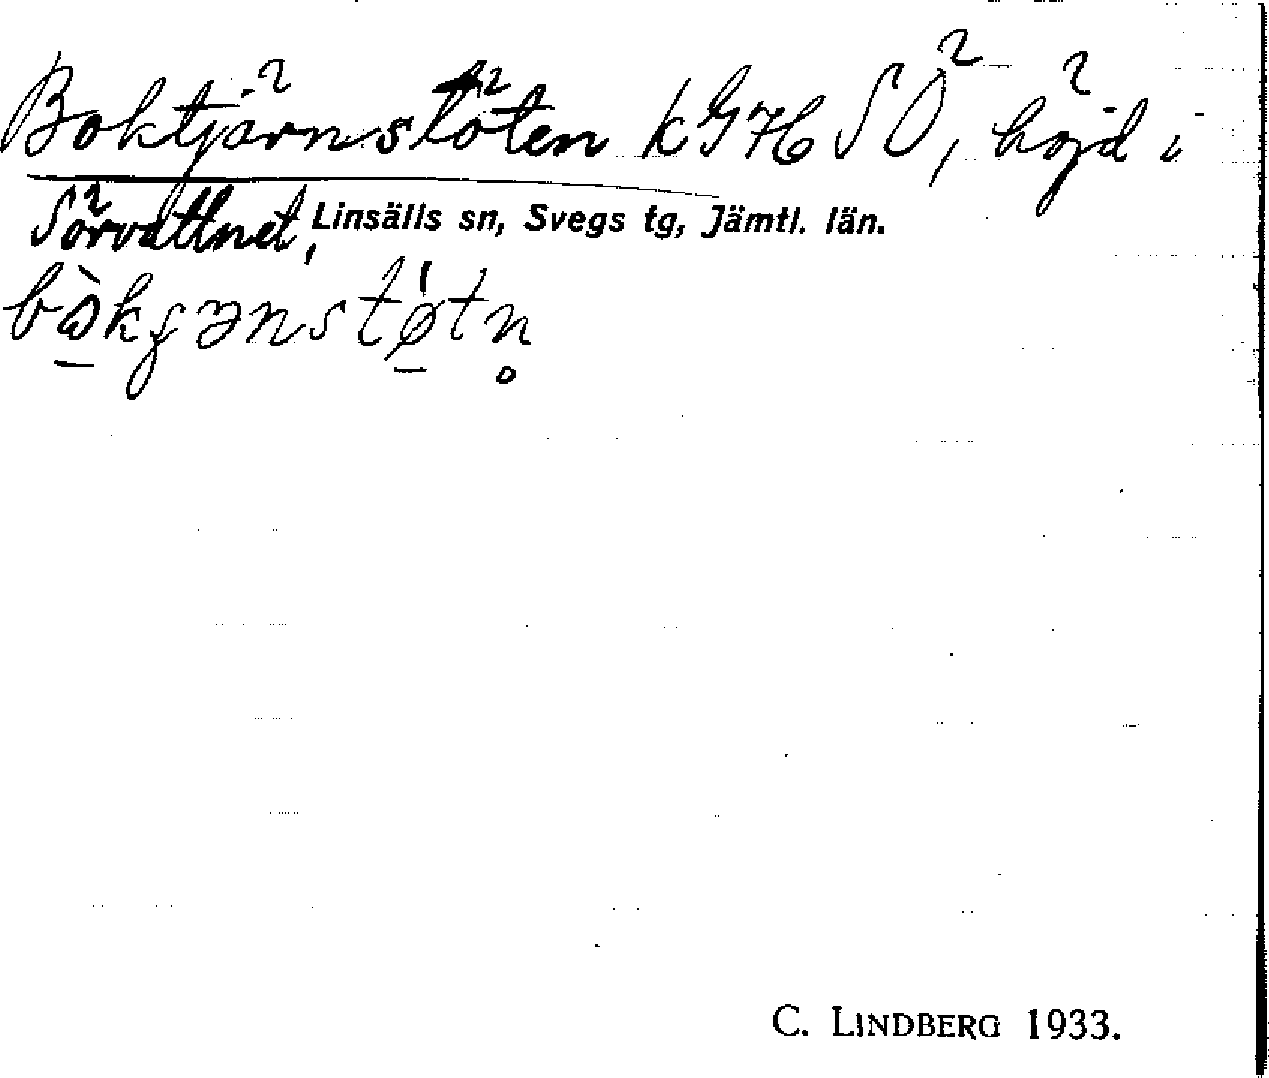 Boktjärnstöten kGH SÖ, höjd i
Sörvattnet, Linsälls sn, Svegs tg, Jämtl. län.
C. LINDBERG 1933.